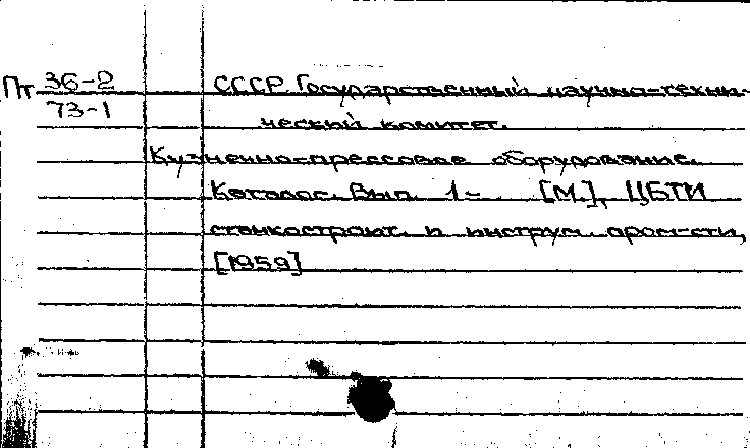 Пт 36-2 СССР. Государственный научно-техни-
73-1
ческий комитет.
Кузнечно-прессовое оборудование.
Каталог. Вып. 1- [М.], ЦБТИ
станкостроит. и инструм. пром-сти,
[1959]